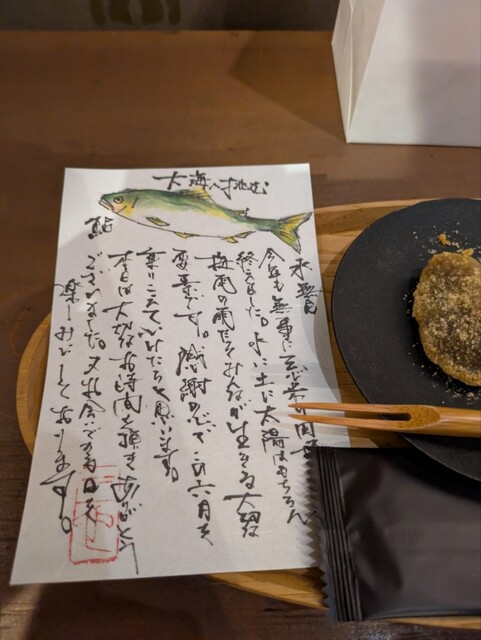 大海へ挑む
鮎
水無月
今年も無事に田んぼの田植えが
終えました。水に土に太陽はもちろん
梅雨の雨だってみんなが生きる大切な
要素です。感謝の心でこの六月を
乗りこえていけたらと思います。
本日は大切なお時間を頂きありがとう
ございました。又お会いできる日を
楽しみにしております。